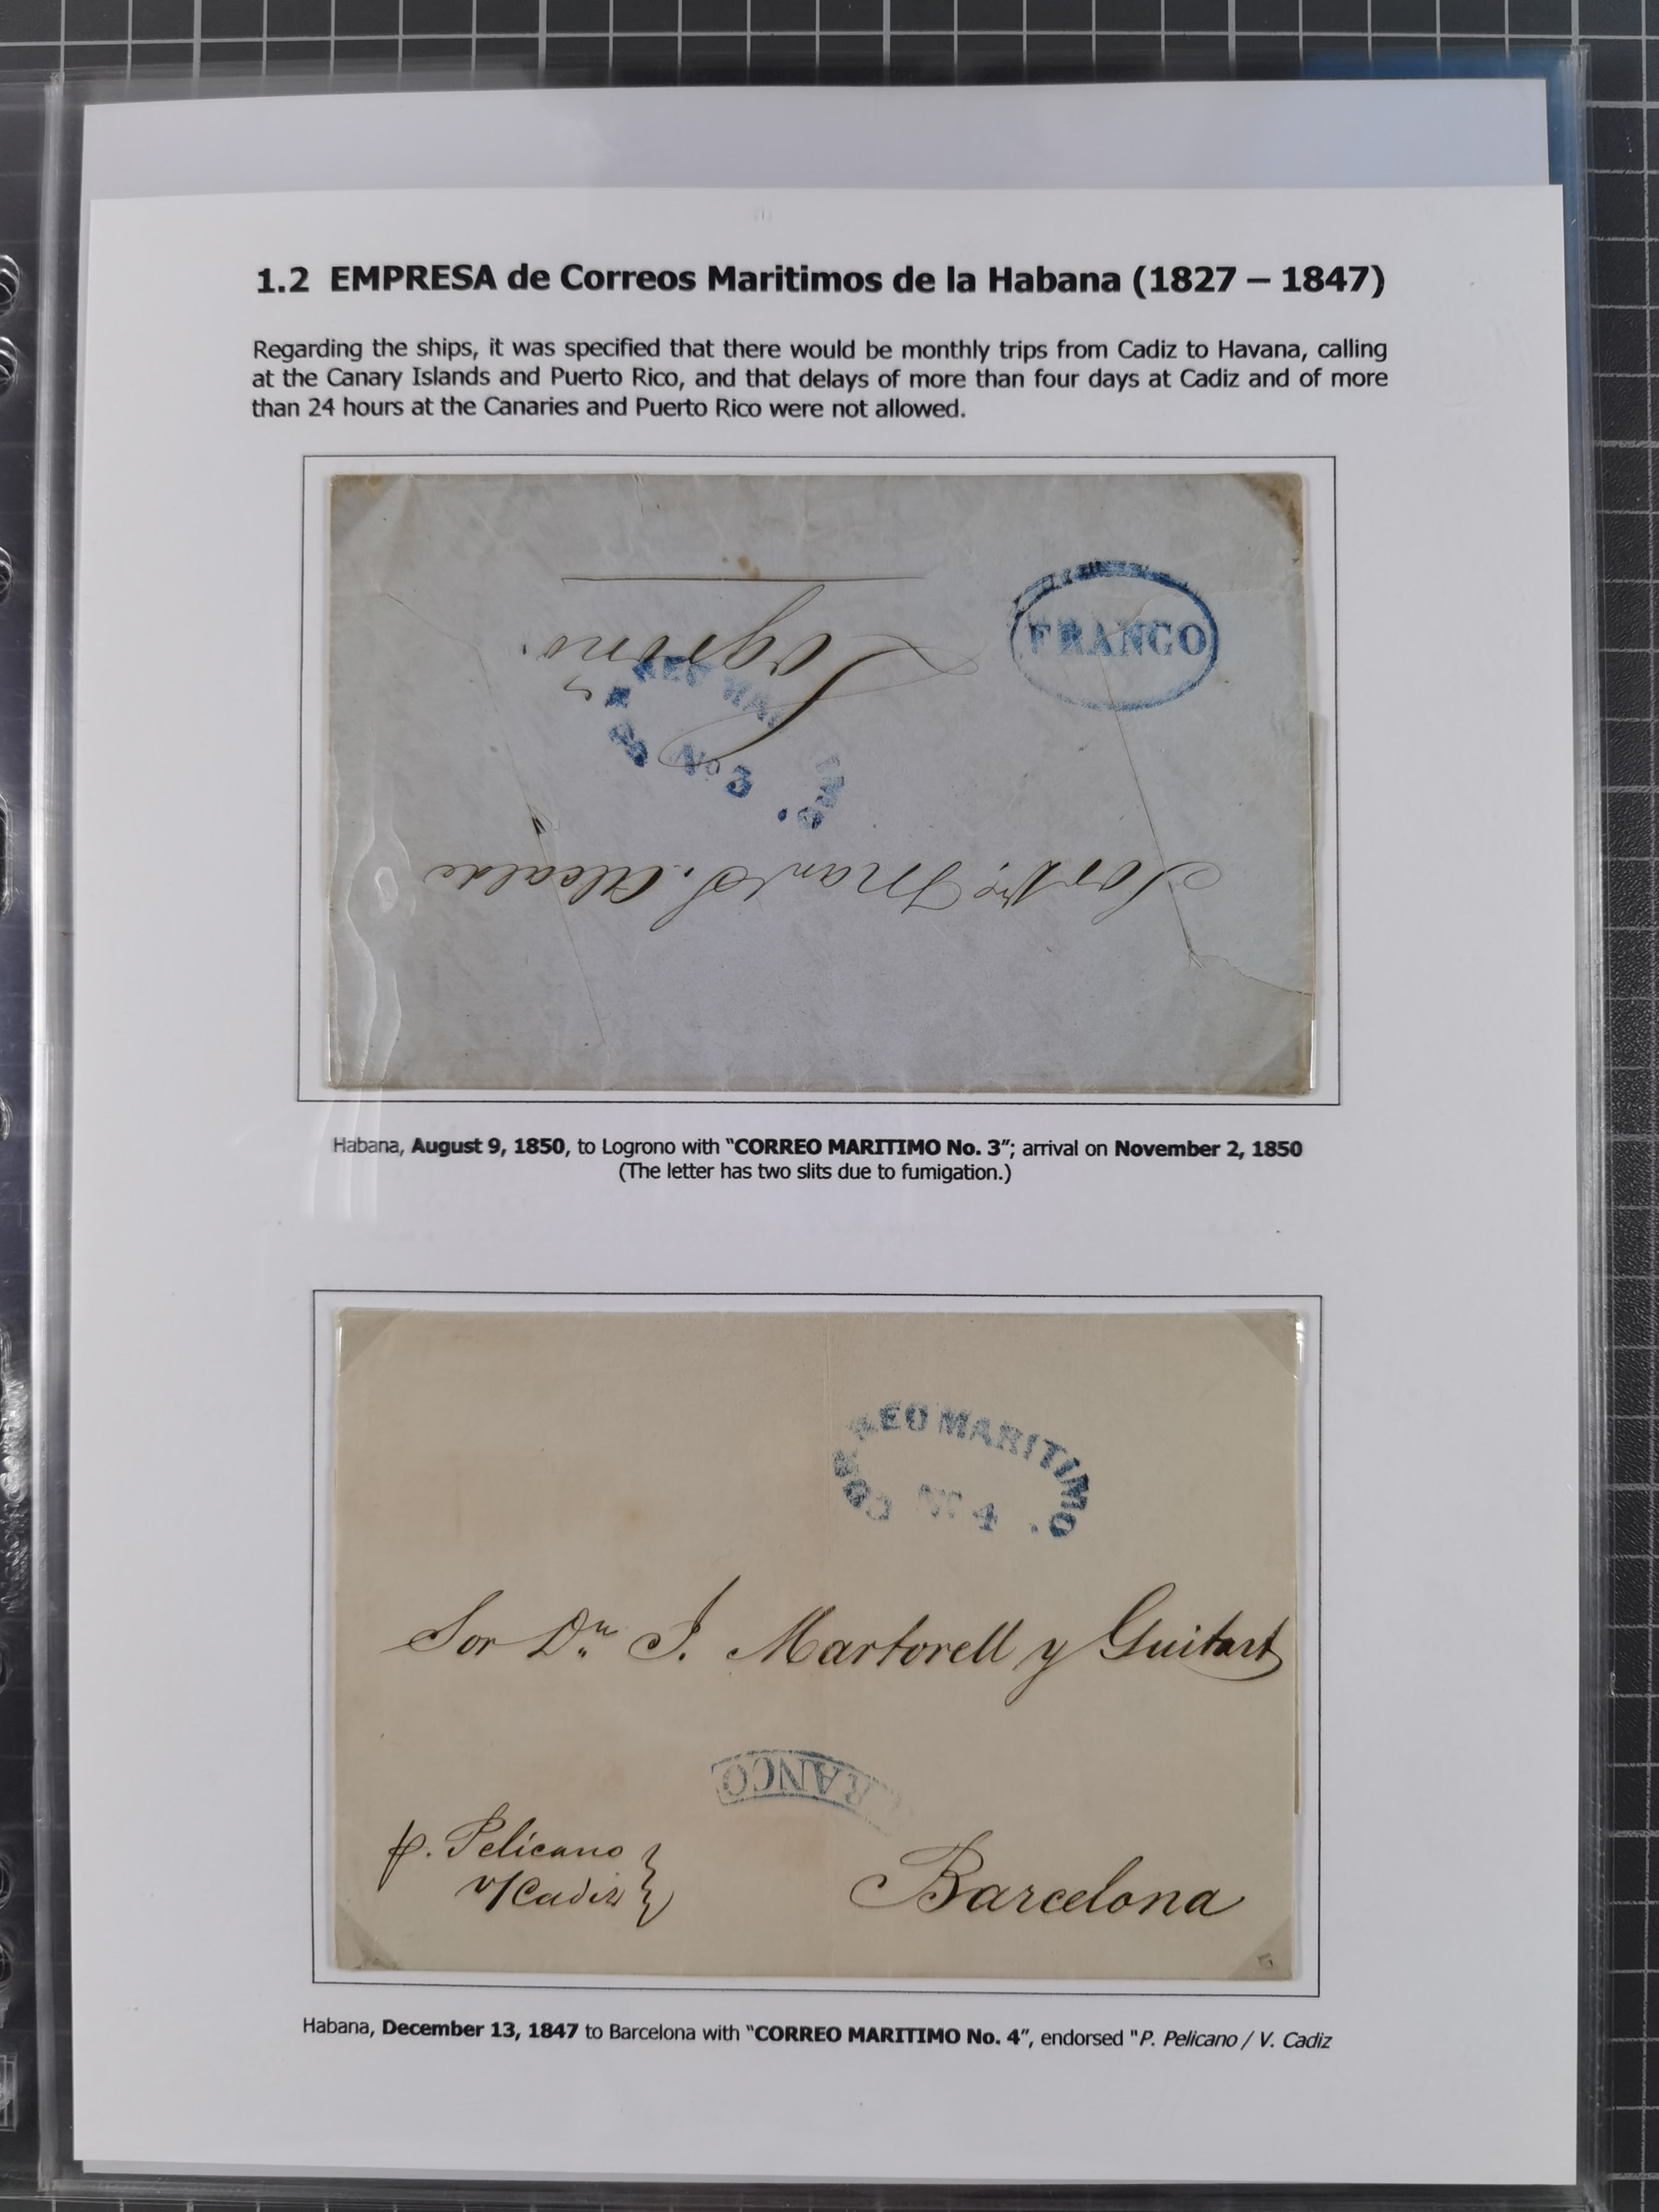 1.2 EMPRESA de Correos Maritimos de la Habana (1827 – 1847)
Regarding the ships, it was specified that there would be monthly trips from Cadiz to Havana, calling
at the Canary Islands and Puerto Rico, and that delays of more than four days at Cadiz and of more
than 24 hours at the Canaries and Puerto Rico were not allowed.
FRANCO
Logroño.
No 3
Alcalde
Habana, August 9, 1850, to Logrono with "CORREO MARITIMO No. 3"; arrival on November 2, 1850
(The letter has two slits due to fumigation.)
CORREO MARITIMO
No 4
Sor Dn. J. Martorell y Guitart
RANCO
p. Pelicano
v/Cadiz
Barcelona
Habana, December 13, 1847 to Barcelona with "CORREO MARITIMO No. 4", endorsed "P. Pelicano / V. Cadiz